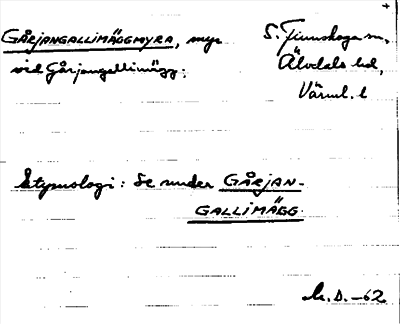 GÅRJANGALLIMÄGGMYRA, myr
vid Gårjangallimägg.
S. Finnskoga sn,
Älvdals hd,
Värml. l
Etymologi: Se under GÅRJAN-
GALLIMÄGG.
-62